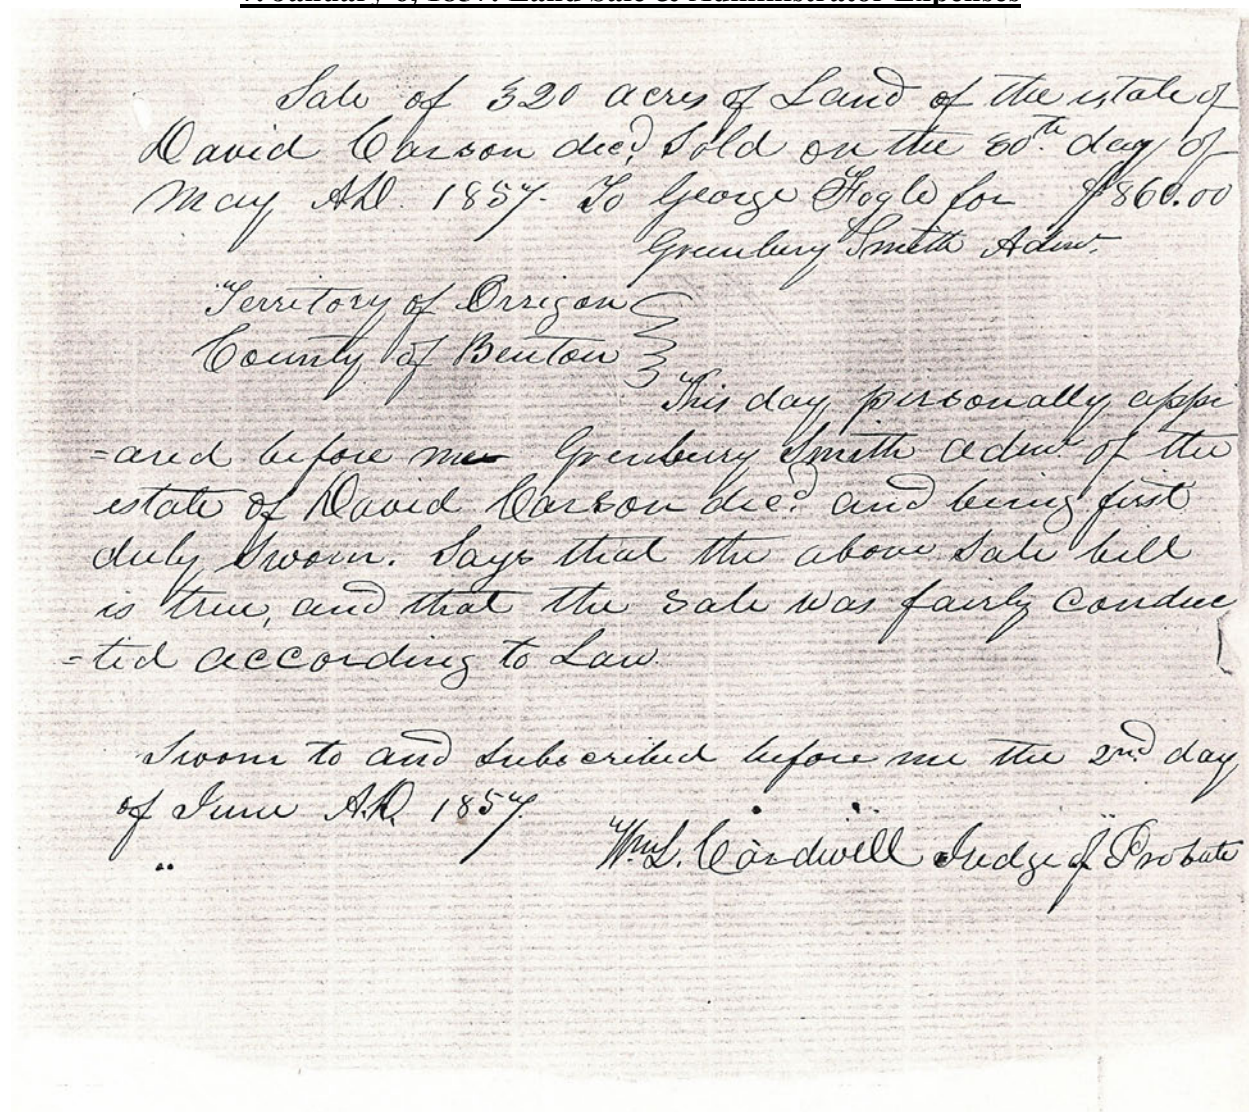 Sale of 320 acres of Land of the estate of
David Carson decd, Sold on the 30th day of
May A.D. 1857. To George Fogle for $860.00
Greenberry Smith Admr.
Territory of Orrigon
County of Benton
This day personally appe
=ared before me Greenberry Smith admr of the
estate of David Carson decd and being first
duly Sworn. Says that the above Sale bill
is true, and that the sale was fairly conduc
=ted according to Law.
Sworn to and Subscribed before me the 2nd day
of June A.D. 1857.
Wm L. Cardwell Judge of Probate